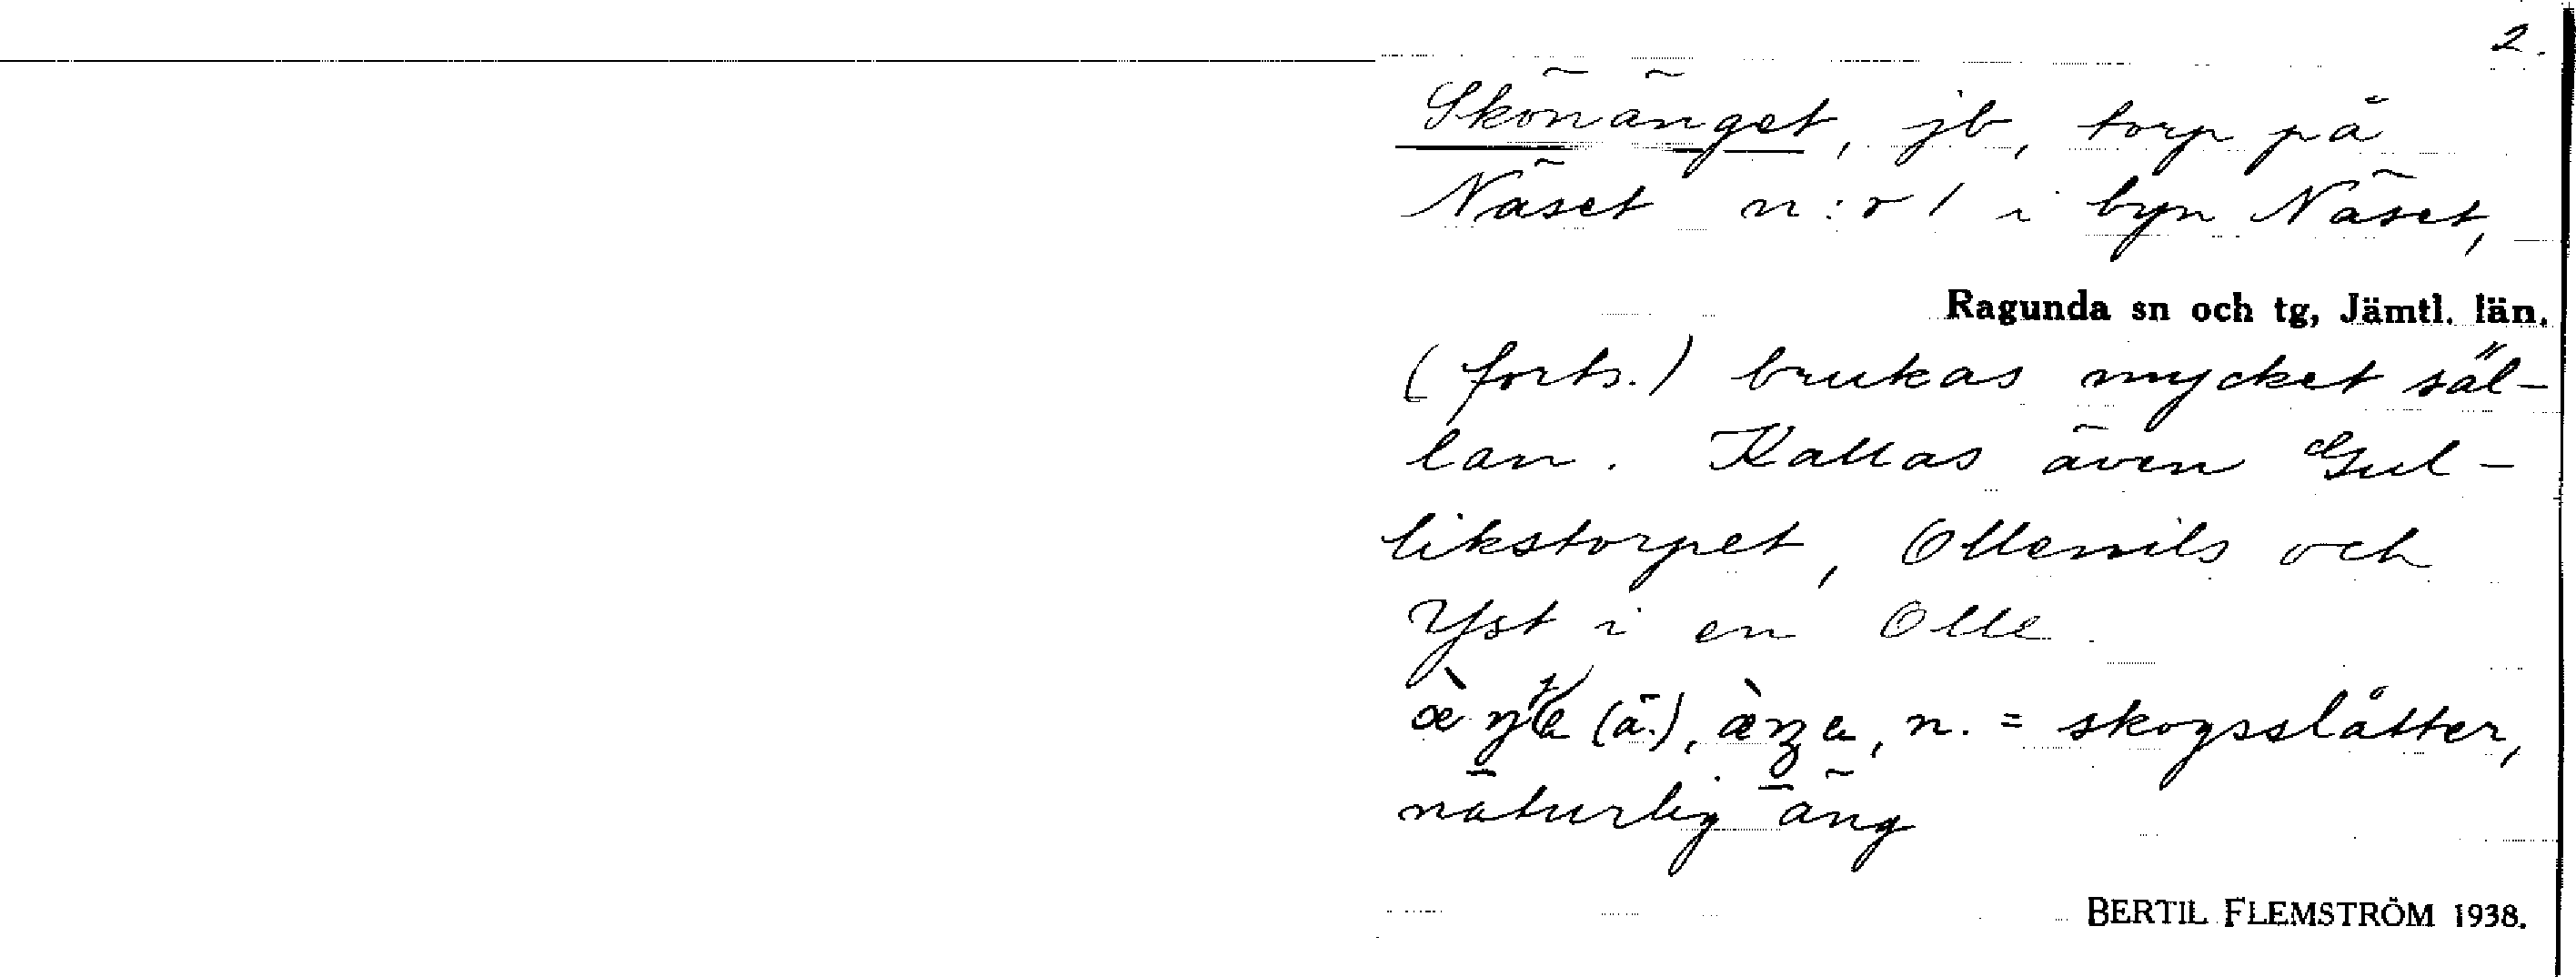 2.
Skönänget, jb, torp på
Näset n:o 1 i byn Näset,
Ragunda sn och tg, Jämtl. län.
(forts.) brukas mycket säl-
lan. Kallas även Gul-
likstorpet, Ollenils och
Yst i en Olle.
(ä.), n. = skogsslåtter,
naturlig äng
BERTIL FLEMSTRÖM 1938.